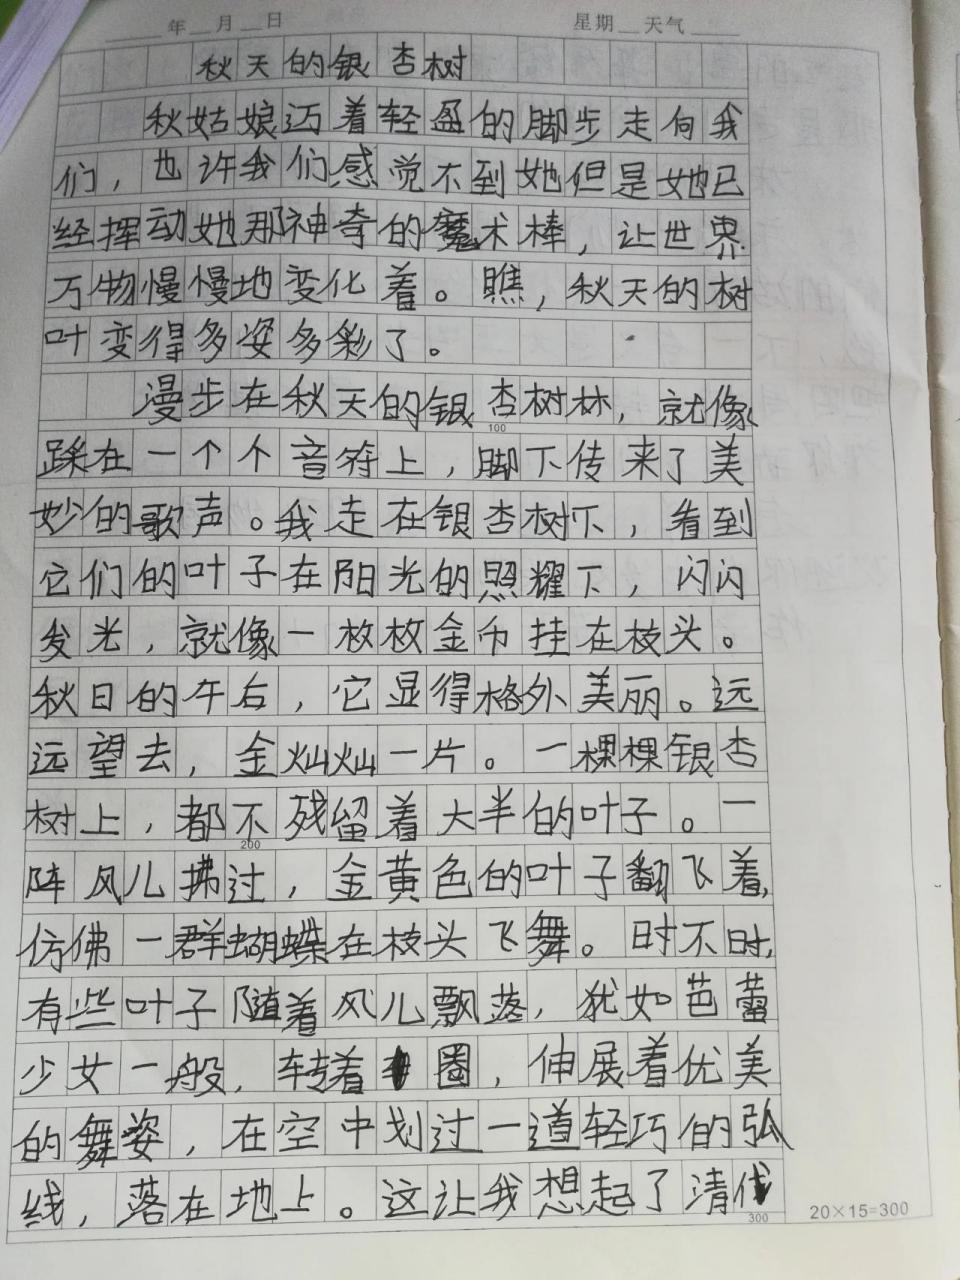 年 月 日 星期 天气
秋天的银杏树
秋姑娘迈着轻盈的脚步走向我
们，也许我们感觉不到她但是她已
经挥动她那神奇的魔术棒，让世界
万物慢慢地变化着。瞧，秋天的树
叶变得多姿多彩了。
漫步在秋天的银杏树林，就像
100
踩在一个个音符上，脚下传来了美
妙的歌声。我走在银杏树下，看到
它们的叶子在阳光的照耀下，闪闪
发光，就像一枚枚金币挂在枝头。
秋日的午后，它显得格外美丽。远
远望去，金灿灿一片。一棵棵银杏
树上，都不残留着大半的叶子。一
200
阵风儿拂过，金黄色的叶子翻飞着，
仿佛一群蝴蝶在枝头飞舞。时不时，
有些叶子随着风儿飘落，犹如芭蕾
少女一般，转着圈，伸展着优美
的舞姿，在空中划过一道轻巧的弧
线，落在地上。这让我想起了清代
300
20×15=300